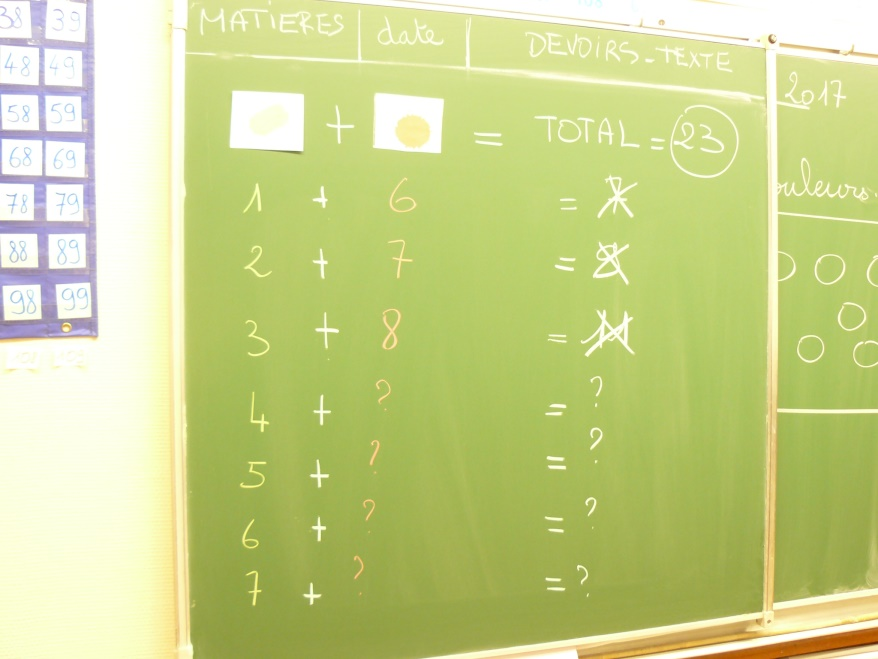 38 39
48 49
58 59
68 69
78 79
88 89
98 99
MATIERES date DEVOIRS-TEXTE
+ = TOTAL = 23
1 + 6 = 7
2 + 7 = 9
3 + 8 = 11
4 + ? = ?
5 + ? = ?
6 + ? = ?
7 + ? = ?
2017
ouleurs.